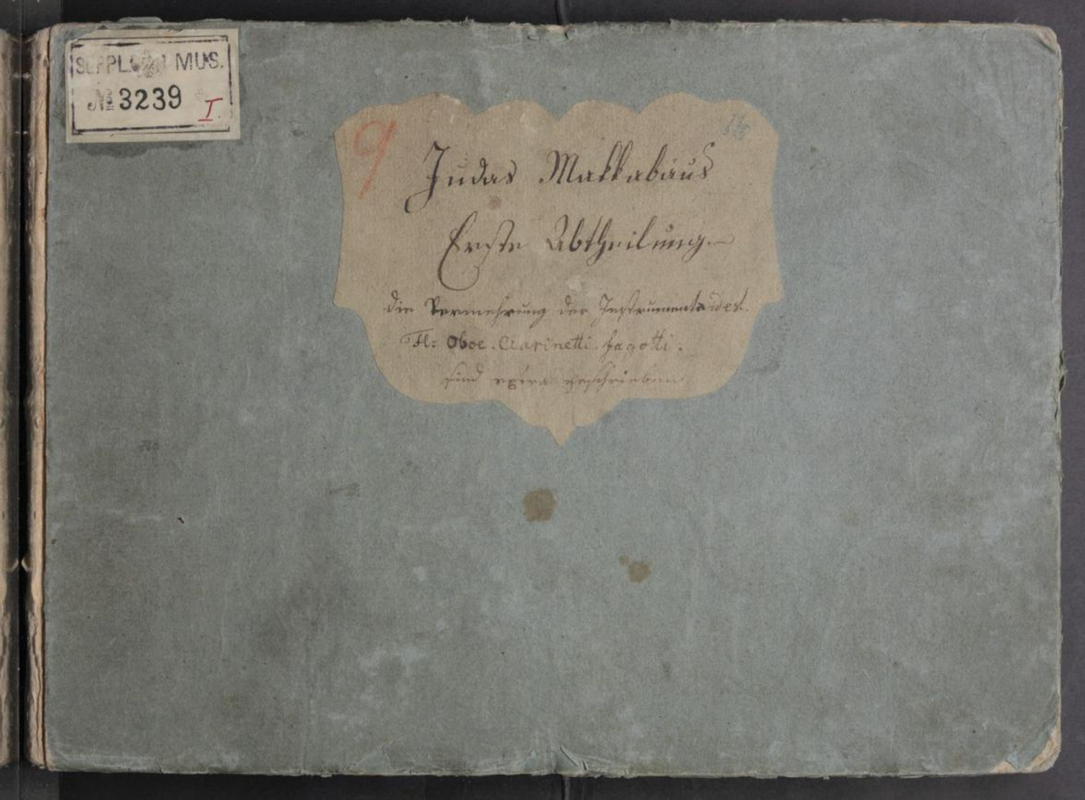 SUPPLEM MUS.
№ 3239
I.
9
Judas Makkabäus
Erste Abtheilung.
die Vermehrung der Instrumente
Fl: Oboe. Clarinetti. fagotti.
sind extra geschrieben